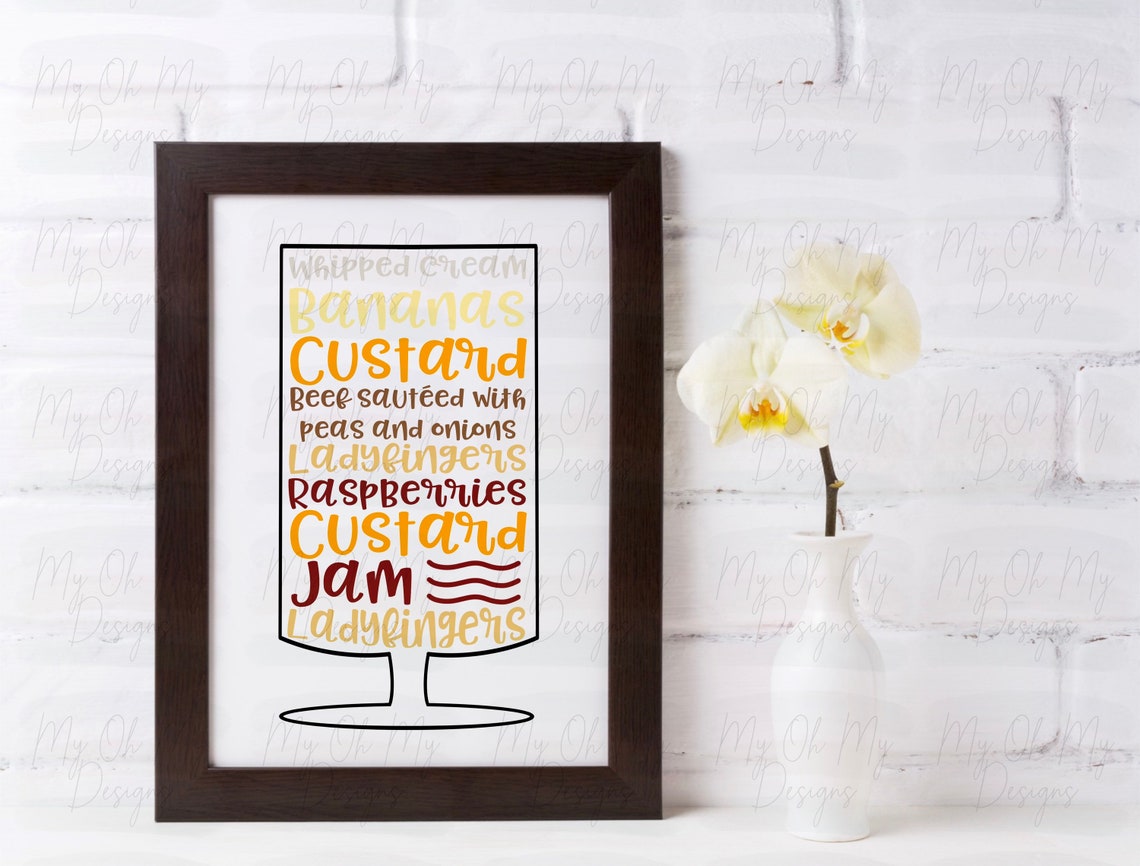 Whipped Cream
Bananas
Custard
Beef sautéed with
peas and onions
Ladyfingers
Raspberries
Custard
Jam
Ladyfingers
My Oh My
Designs